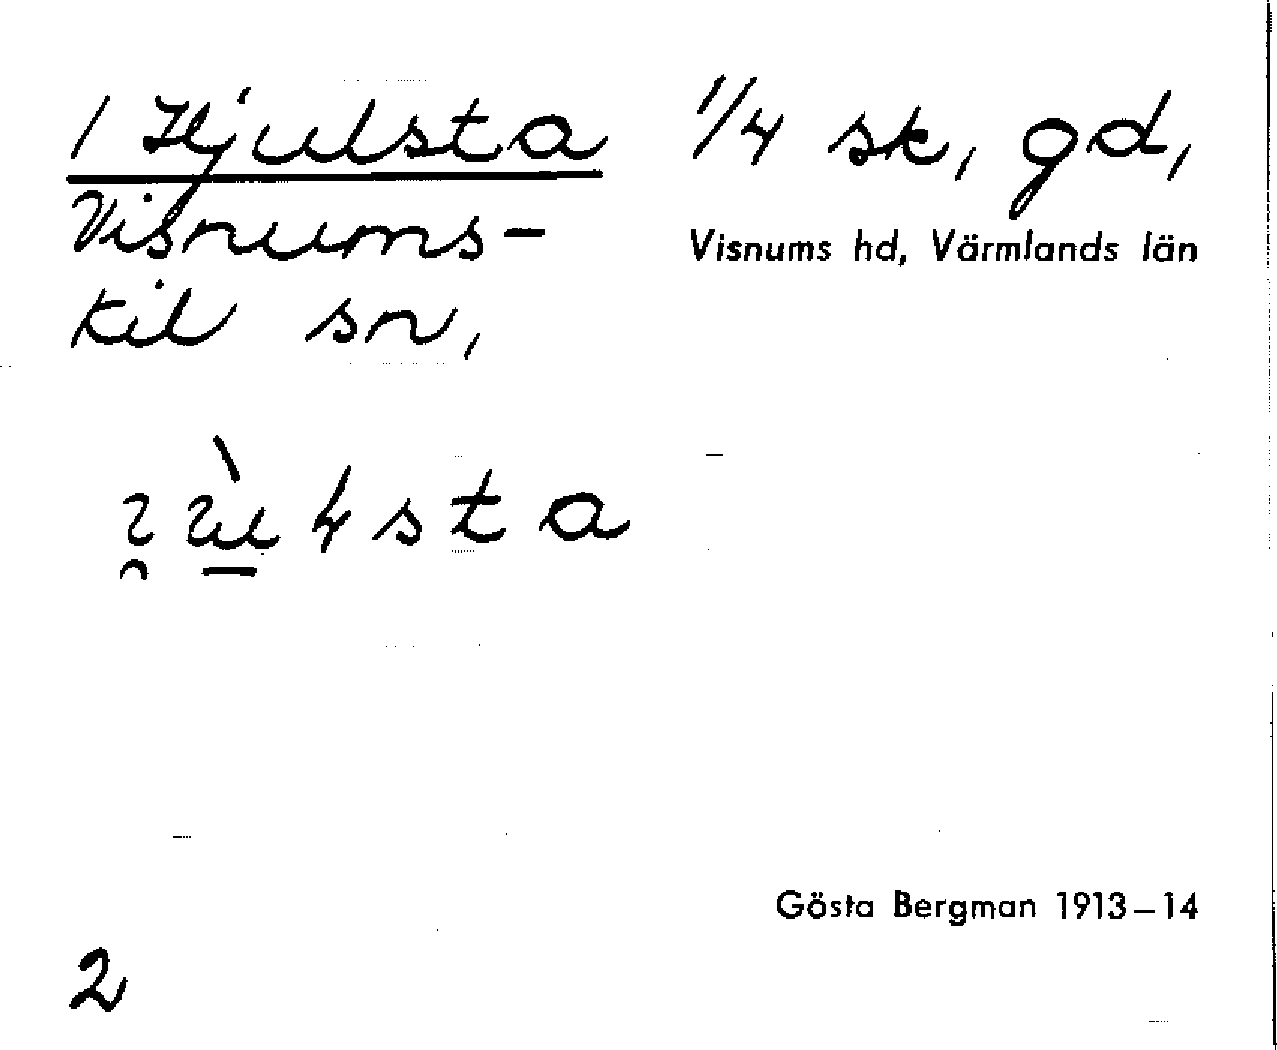 1 Hjulsta 1/4 sk, gd,
Visnums-
kil sn,
Visnums hd, Värmlands län
Gösta Bergman 1913–14
2